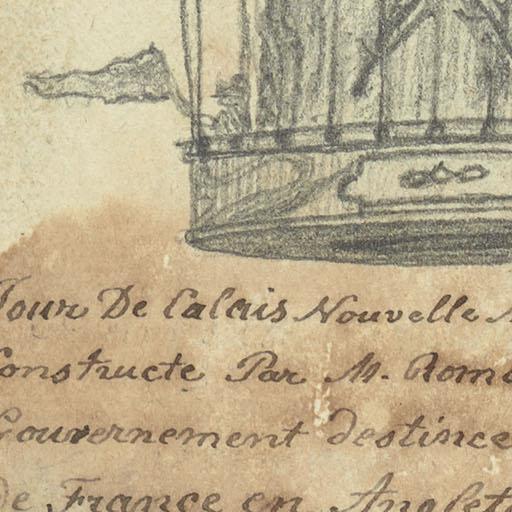 Tour De Calais Nouvelle
Constructe Par M. Rom
Gouvernement destince
De France en Anglet